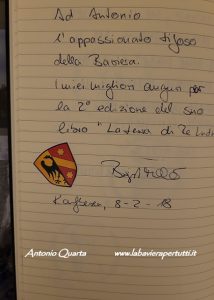 Ad Antonio
l'appassionato tifoso
della Baviera.
I miei migliori auguri per
la 2° edizione del suo
libro "La terra di Re Ludwig
8-2-18
Antonio Quarta
www.labavierapertutti.it